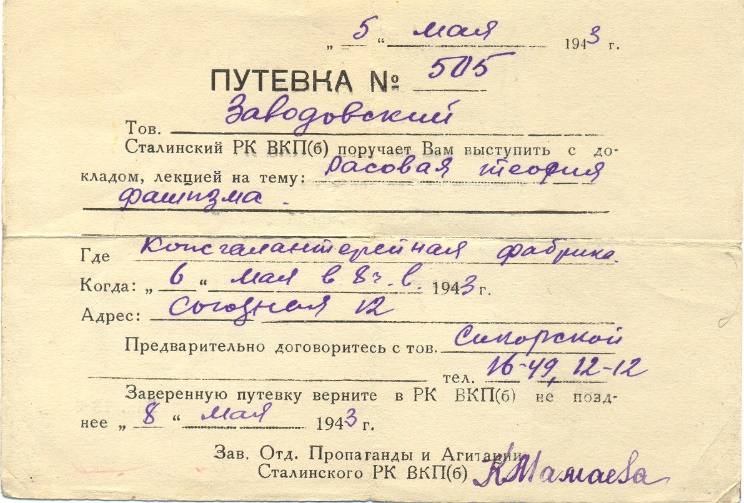 „ 5 “ мая 1943 г.
ПУТЕВКА № 505
Тов. Заводовский
Сталинский РК ВКП(б) поручает Вам выступить с до-
кладом, лекцией на тему: Расовая теория
фашизма.
Где Кожгалантерейная фабрика.
Когда: „ 6 “ мая в 8 ч. в. 1943 г.
Адрес: Союзная 12
Предварительно договоритесь с тов. Сикорской
тел. 16-49, 12-12
Заверенную путевку верните в РК ВКП(б) не позд-
нее „ 8 “ мая 1943 г.
Зав. Отд. Пропаганды и Агитации
Сталинского РК ВКП(б) КМамаева